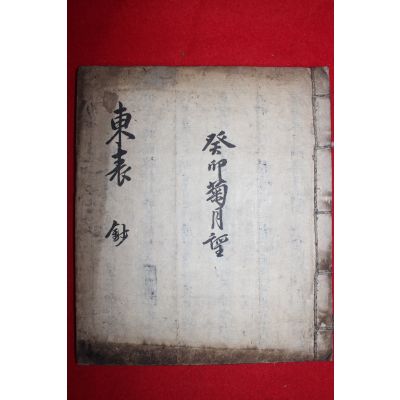 東表 鈔
癸卯菊月望